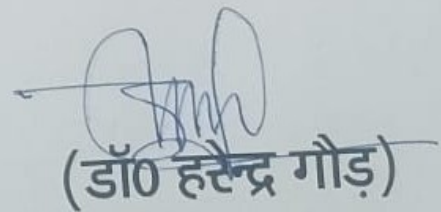 (डॉ0 हरेन्द्र गौड़)